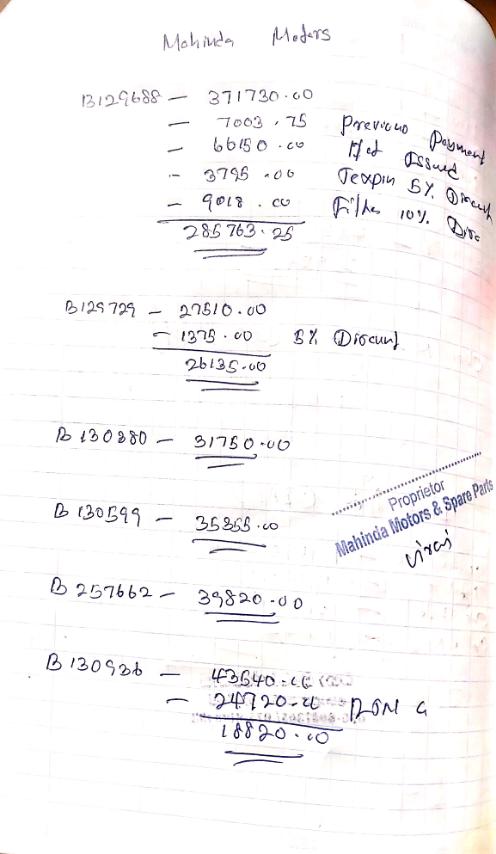 Mahinda Motors
B129688 - 371730.00
- 7003.75 Previous Payment
- 66150.00 Issued
- 3795.00 5% Discount
- 9018.00 10% Disc
285763.25
B129729 - 27510.00
- 1375.00 5% Discount
26135.00
B130880 - 31750.00
Proprietor
Mahinda Motors & Spare Parts
B130599 - 35855.00
B257662 - 39820.00
B130936 - 43540.00
- 24720.00
18820.00